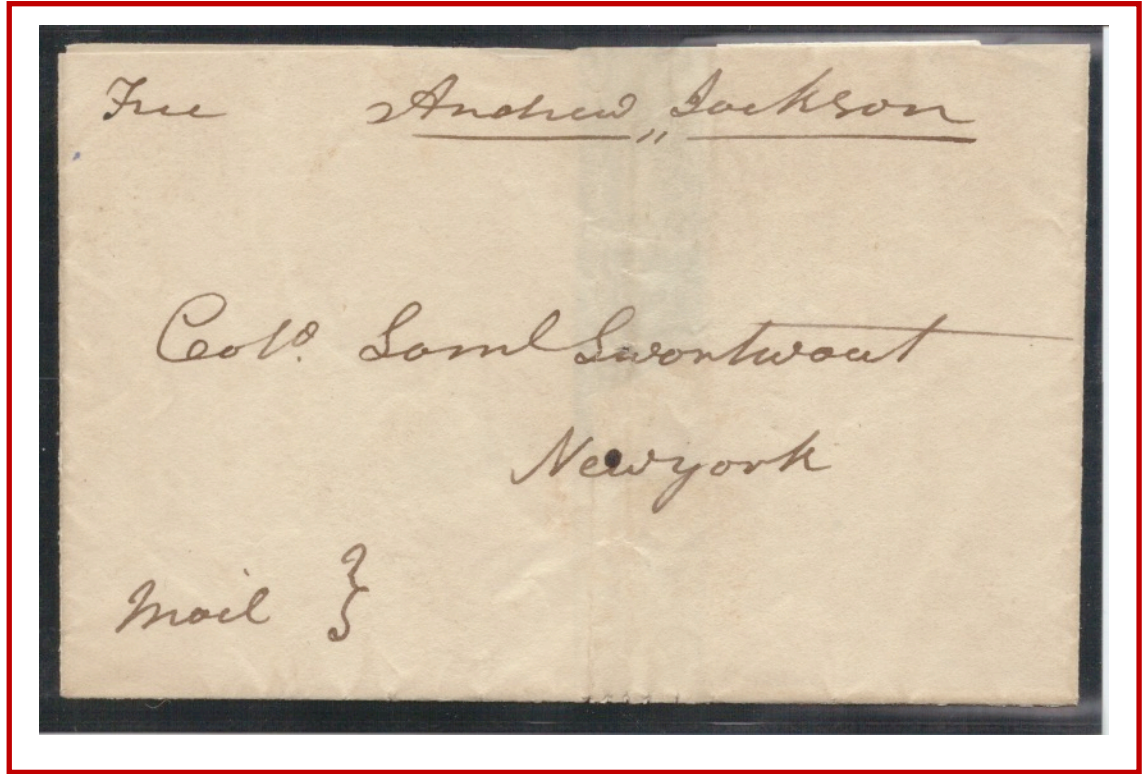 Free Andrew,, Jackson
Colo. Saml Swartwout
Newyork
Mail }